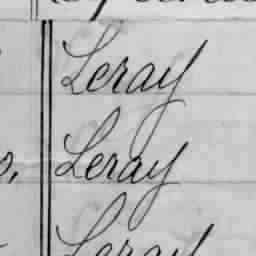 Leray
Leray
Leray